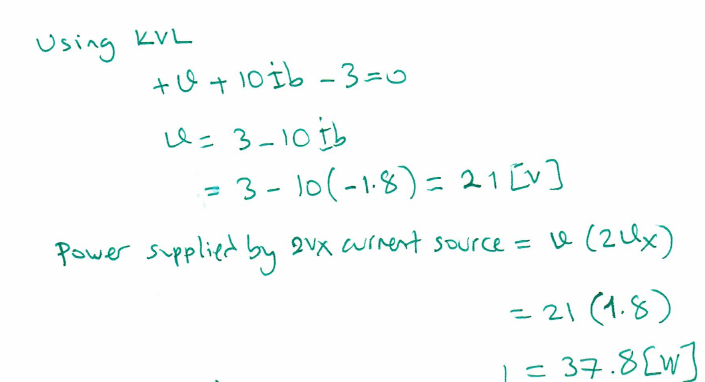 Using KVL
+v + 10ib - 3 = 0
v = 3 - 10 ib
= 3 - 10(-1.8) = 21 [v]
Power supplied by 2vx current source = v (2vx)
= 21 (1.8)
= 37.8 [W]